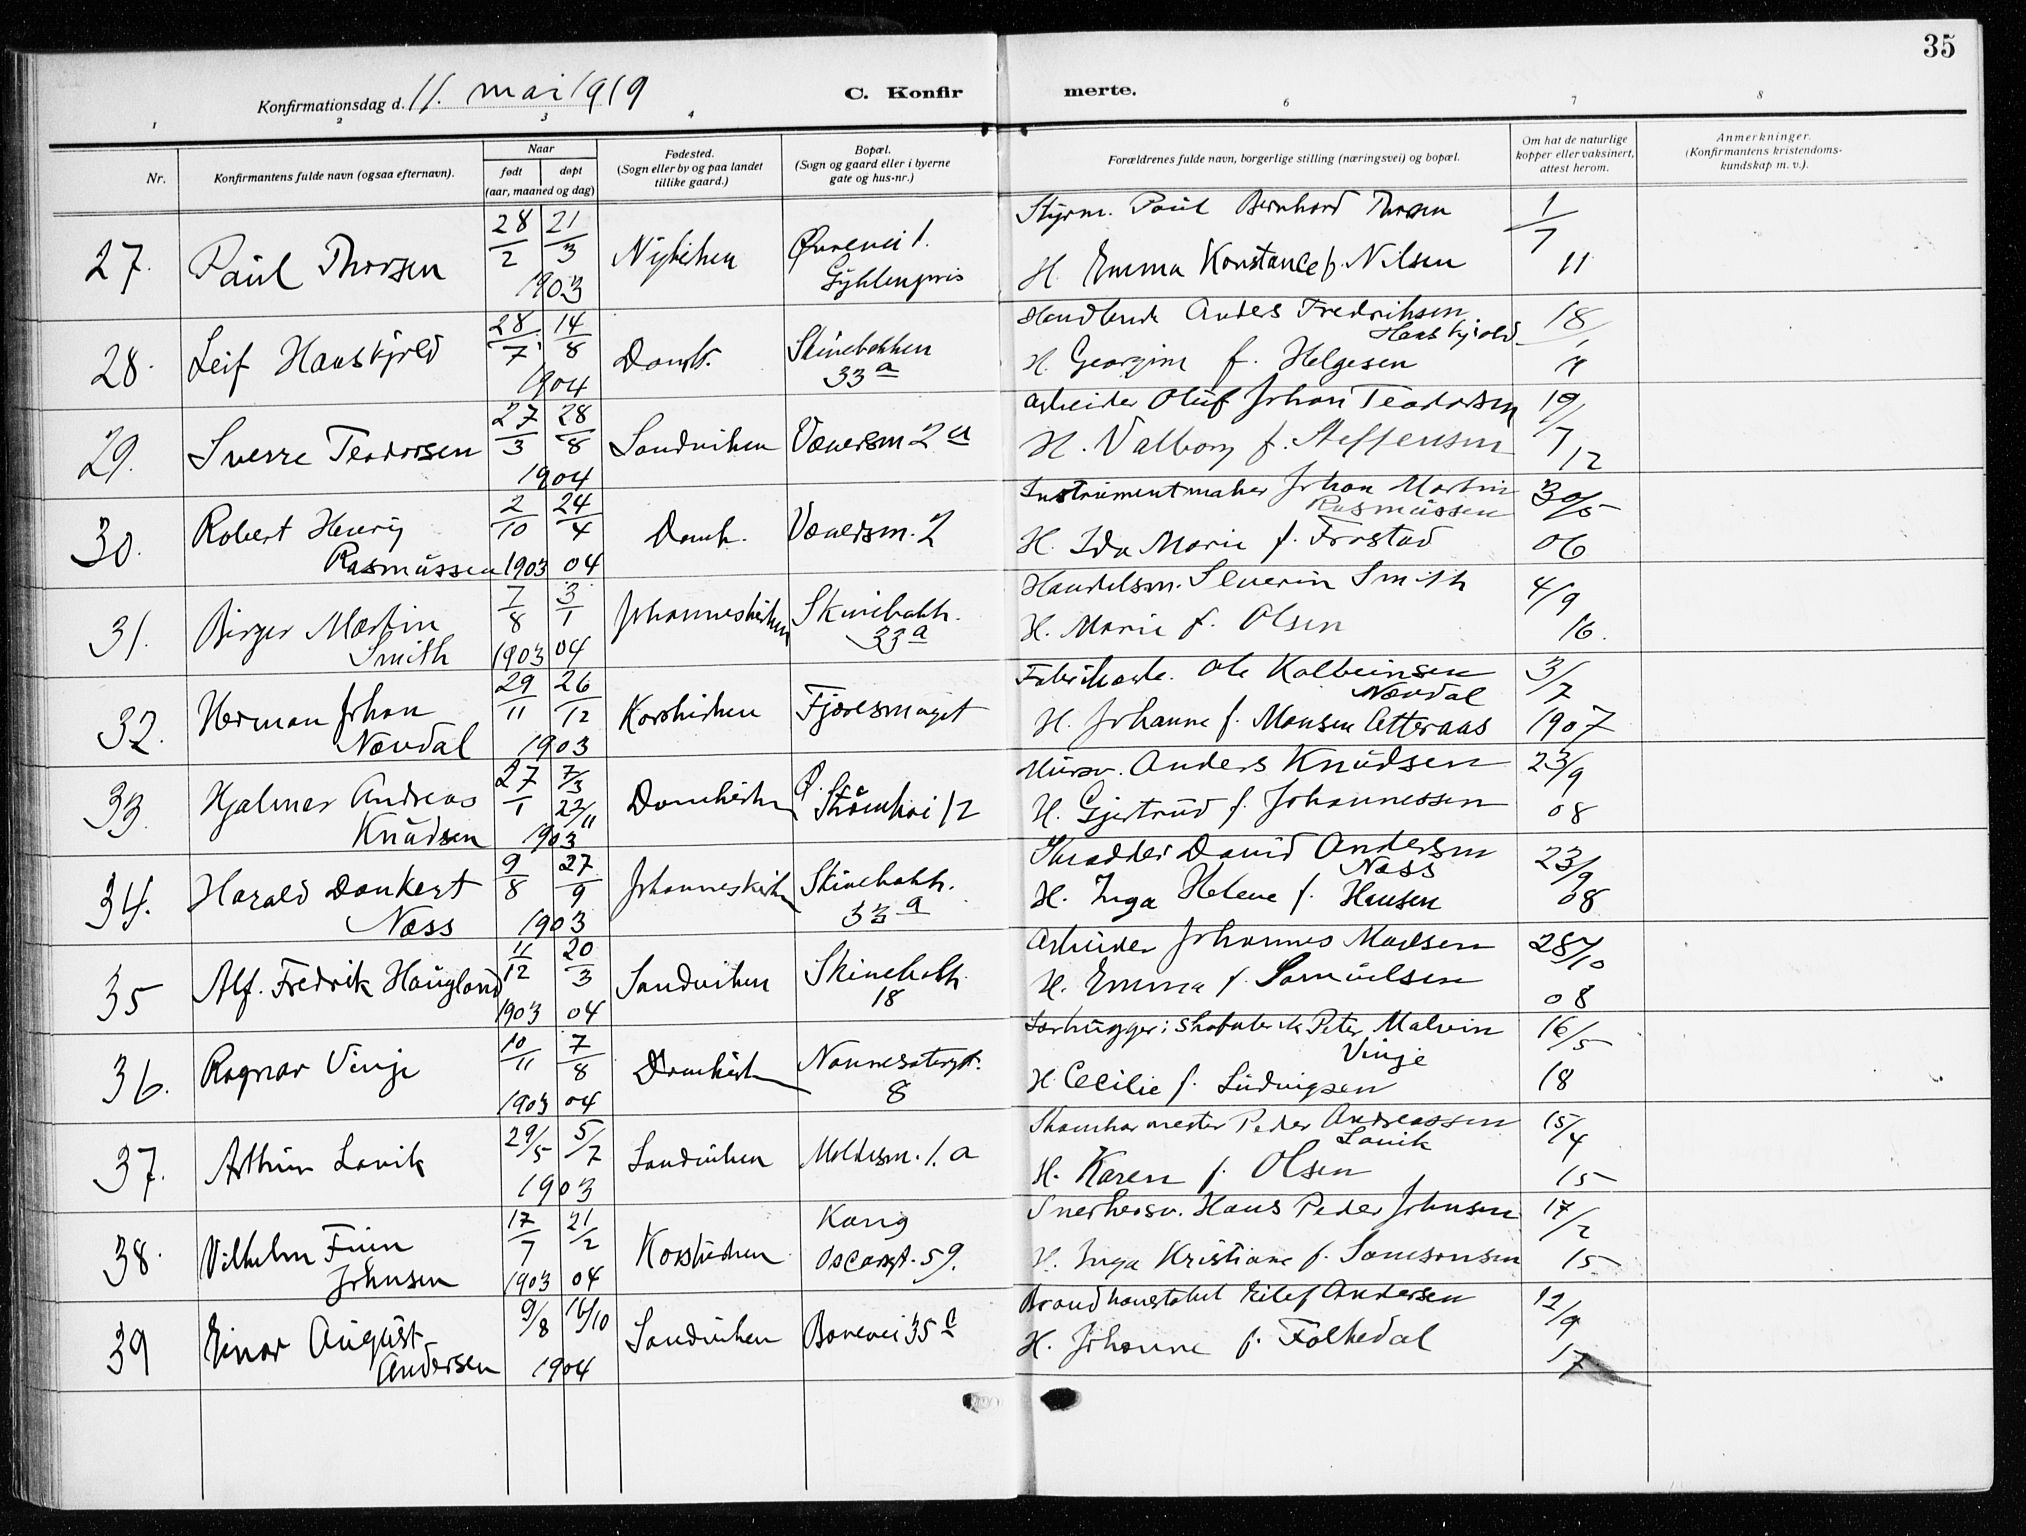 35
Konfirmationsdag d. 11. mai 1919
C. Konfirmerte.
1 2 3 4 6 7 8
Nr.
Konfirmantens fulde navn (ogsaa efternavn).
Naar
født døpt
(aar, maaned og dag)
Fødested.
(Sogn eller by og paa landet
tillike gaard.)
Bopæl.
(Sogn og gaard eller i byerne
gate og hus-nr.)
Forældrenes fulde navn, borgerlige stilling (næringsvei) og bopæl.
Om hat de naturlige
kopper eller vaksinert,
attest herom.
Anmerkninger.
(Konfirmantens kristendoms-
kundskap m. v.).
27. Paul Thorsen 28/2 21/3 1903 Nykirken Øvrevei 1. Gyldenpris
Styrm. Paul Bernhard Thorsen
H. Emma Konstance f. Nilsen 1/7 11
28. Leif Haaskjold 28/7 14/8 1904 Domk. Skivebakken 33 a
Handlende Anders Fredriksen Haaskjold
H. Georgine f. Helgesen 18/
29. Sverre Teodorsen 27/3 28/8 1904 Sandviken Væversm. 2 a
Arbeider Oluf Johan Teodorsen
H. Valborg f. Steffensen 19/7 12
30. Robert Henry Rasmussen 2/10 1903 24/4 04 Domk. Væversm. 2
Instrumentmaker Johan Martin Rasmussen
H. Ida Marie f. Frostad 30/5 06
31. Birger Martin Smith 7/8 1903 3/1 04 Johanneskirken Skivebakk. 33 a
Handelsm. Severin Smith
H. Marie f. Olsen 4/9 16.
32. Herman Johan Nævdal 29/11 26/12 1903 Korskirken Fjøresmuget
Fabrikarb. Ole Kolbeinsen Nævdal
H. Johanne f. Monsen Atteraas 3/7 1907
33. Hjalmar Andreas Knudsen 27/1 7/3 22/11 1903 Domkirken Ø. Strømkai 12
Mursv. Anders Knudsen
H. Gjertrud f. Johannessen 23/9 08
34. Harald Dankert Næss 9/8 27/9 1903 Johanneskirken Skivebakk. 33 a
Skrædder David Andersen Næss
H. Inga Helene f. Hansen 23/9 08
35 Alf. Fredrik Haugland 11/12 1903 20/3 04 Sandviken Skivebakk. 18
Arbeider Johannes Madsen
H. Emma f. Samuelsen 28/10 08
36. Ragnar Vinje 10/11 1903 7/8 04 Domkirken Nonnesætergt. 8
Lærhugger i Skofabrik Peter Malvin Vinje
H. Cecilie f. Ludvigsen 16/5 18
37. Arthur Lavik 29/5 5/7 1903 Sandviken Moldesm. 1. a
Peder Andreassen Lavik
H. Karen f. Olsen 15/4 15
38. Vilhelm Finn Johnsen 17/7 1903 21/2 04 Korskirken Kong Oscarsgt. 59.
Snekkersv. Hans Peder Johnsen
H. Inga Kristiane f. Samsonsen 17/2 15
39 Einar August Andersen 9/8 16/10 1904 Sandviken Bonevei 35 c
Brandkonstabel Eilef Andersen
H. Johanne f. Folkedal 12/9 17